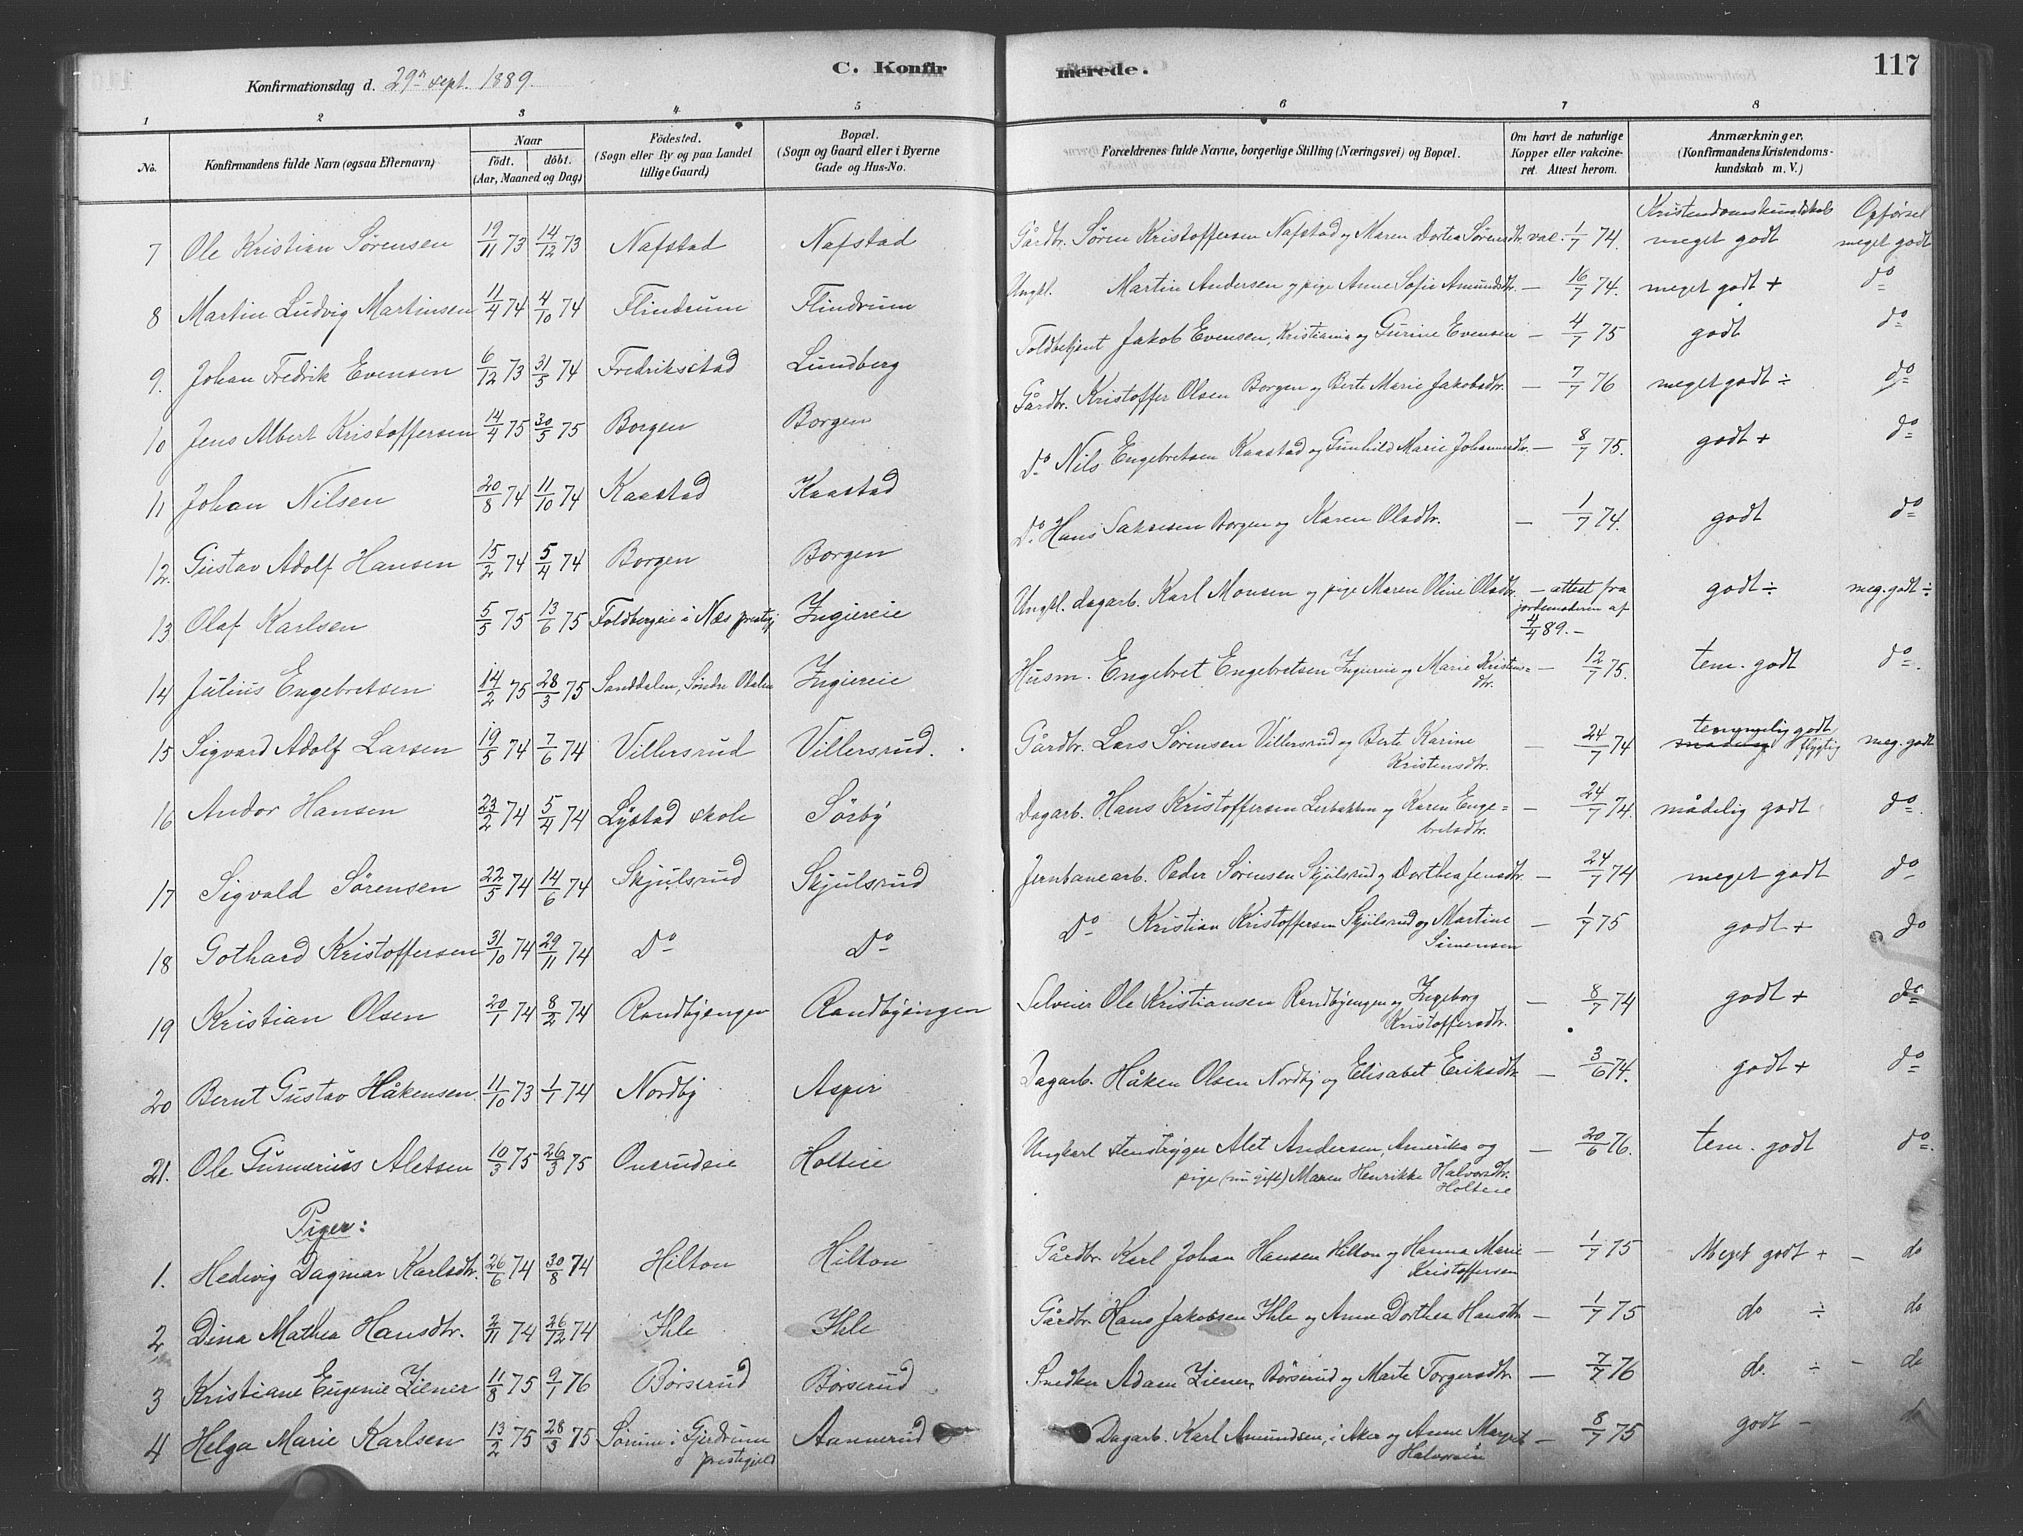 Konfirmationsdag d. 29n sept. 1889.
C. Konfir
merede.
117
1 2 3 4 5 6 7 8
No.
Konfirmandens fulde Navn (ogsaa Efternavn)
Naar
födt. döbt.
(Aar, Maaned og Dag)
Födested.
(Sogn eller By og paa Landet
tillige Gaard)
Bopæl.
(Sogn og Gaard eller i Byerne
Gade og Hus-No.
Forældrenes fulde Navne, borgerlige Stilling (Næringsvei) og Bopæl.
Om havt de naturlige
Kopper eller vakcine-
ret. Attest herom.
Anmærkninger.
(Konfirmandens Kristendoms-
kundskab m. V.)
Kristendomskundskab Opførsel
7 Ole Kristian Sørensen 19/11 73 14/12 73 Nafstad Nafstad Gårdbr. Søren Kristoffersen Nafstad og Maren Dortea Sørensdtr. vac. 1/7 74. meget godt meget godt
8 Martin Ludvig Martinsen 11/4 74 4/10 74 Flindrum Flindrum Ungkl. Martin Andersen og pige Anne Sofie Amundsdtr. — 16/7 74. meget godt + do
9. Johan Fredrik Evensen 6/12 73 31/5 74 Fredriksstad Lundberg Toldbetjent Jakob Evensen, Kristiania og Gurine Evensen — 4/7 75 godt do
10 Jens Albert Kristoffersen 14/4 75 30/5 75 Borgen Borgen Gårdbr. Kristoffer Olsen Borgen og Berte Marie Jakobsdtr. — 7/7 76 meget godt ÷ do
11 Johan Nilsen 20/8 74 11/10 74 Kaastad Kaastad Do Nils Engebretsen Kaastad og Gunhild Marie Johannesdtr. — 8/7 75. godt + do
12. Gustav Adolf Hansen 15/2 74 5/4 74 Borgen Borgen Do Hans Saksesen Borgen og Karen Olsdtr. — 1/7 74. godt do
13 Olaf Karlsen 5/5 75 13/6 75 Foldbergeie i Næs prestgj. Ingiereie Ungkl. dagarb. Karl Monsen og pige Maren Oline Olsdtr. — attest fra godt ÷ meg. godt ÷
jordemoderen af
4/4 89. —
14 Julius Engebretsen 14/2 75 28/3 75 Sanddalen, Søndre Odalen Ingiereie Husm. Engebret Engebretsen Ingiereie og Marie Kristens= — 12/7 75. tem. godt do
dtr.
15 Sigvard Adolf Larsen 19/5 74 7/6 74 Villersrud Villersrud. Gårdbr. Lars Sørensen Villersrud og Berte Karine — 24/7 74 temmelig godt meg. godt
Kristensdtr. flygtig
16 Andor Hansen 23/2 74 5/4 74 Lystad skole Sørby Dagarb. Hans Kristoffersen Lerbakken og Karen Enge= — 24/7 74. mådelig godt do
bretsdtr.
17 Sigvald Sørensen 22/5 74 14/6 74 Skjulsrud Skjulsrud Jernbanearb. Peder Sørensen Skjulsrud og Dorthea Jensdtr. — 24/7 74 meget godt do
18 Gothard Kristoffersen 31/10 74 29/11 74 Do Do Do Kristian Kristoffersen Skjulsrud og Martine — 1/7 75 godt + do
Simensen
19 Kristian Olsen 20/1 74 8/2 74 Randbyengen Randbyengen Selveier Ole Kristiansen Randbyengen og Ingeborg — 8/7 74 godt + do
Kristoffersdtr.
20 Bernt Gustav Håkensen 11/10 73 1/1 74 Nordby Asper Dagarb. Håken Olsen Nordby og Elisabet Eriksdtr. — 3/6 74. godt + do
21. Ole Gunnerius Aletsen 10/3 75 26/3 75 Onsrudeie Holteie Ungkarl stenbryger Alet Andersen, Amerika og — 20/6 76. tem. godt do
pige (nu gift) Maren Henrikke Halvorsdtr.
Holteie
Piger:
1. Hedevig Dagmar Karlsdtr. 26/6 74 30/8 74 Hilton Hilton Gårdbr. Karl Johan Hansen Hilton og Hanna Marie — 1/7 75 Meget godt + — do
Kristoffersen
2. Dina Mathea Hansdtr. 2/11 74 26/12 74 Ihle Ihle Gårdbr. Hans Jakobsen Ihle og Anne Dorthea Hansdtr. — 1/7 75 do ÷ do
3 Kristiane Eugenie Ziener 11/8 75 9/1 76 Børserud Børserud Snedker Adam Ziener, Børserud og Marte Torgersdtr. — 7/7 76 do. ÷ — do
4 Helga Marie Karlsen 13/2 75 28/3 75 Sørum i Gjerdrum Aannerud Dagarb. Karl Amundsen, i Aker og Anne Margret — 8/7 75 godt — do
prestegjeld Halvorsen